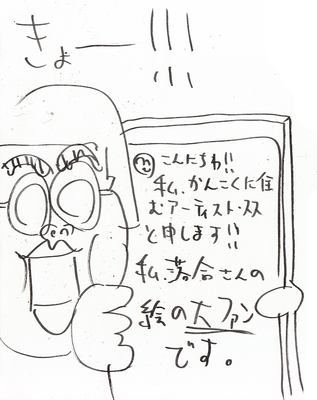 きょー!!!
こんにちわ!!
私、かんこくに住
むアーティスト・スス
と申します!!
私、落合さんの
絵の大ファン
です。